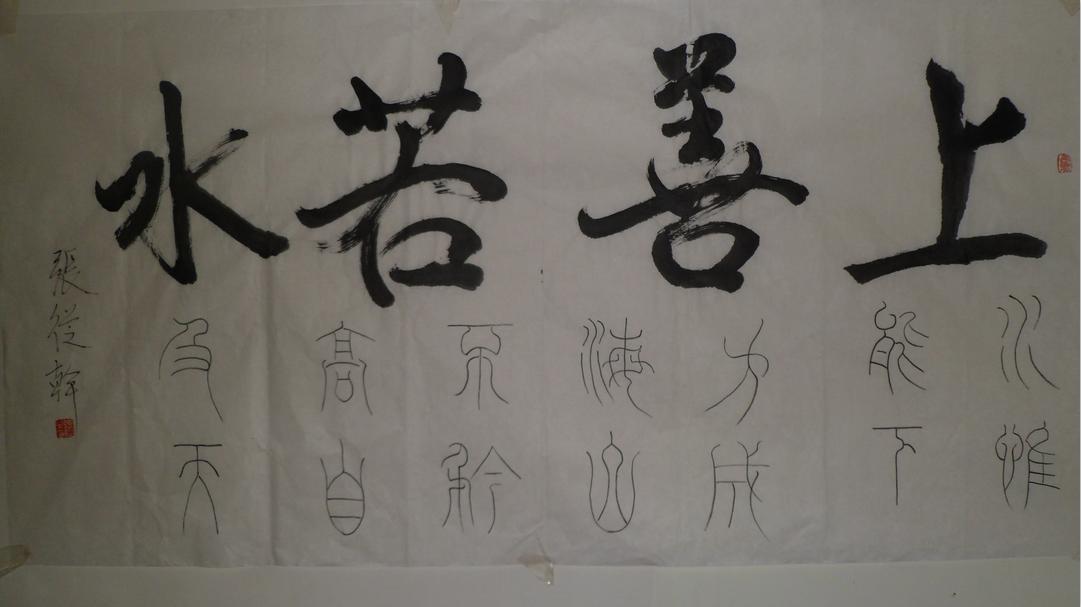 上善若水
水惟
能下
方成
海山
不矜
高自
及天
張從幹